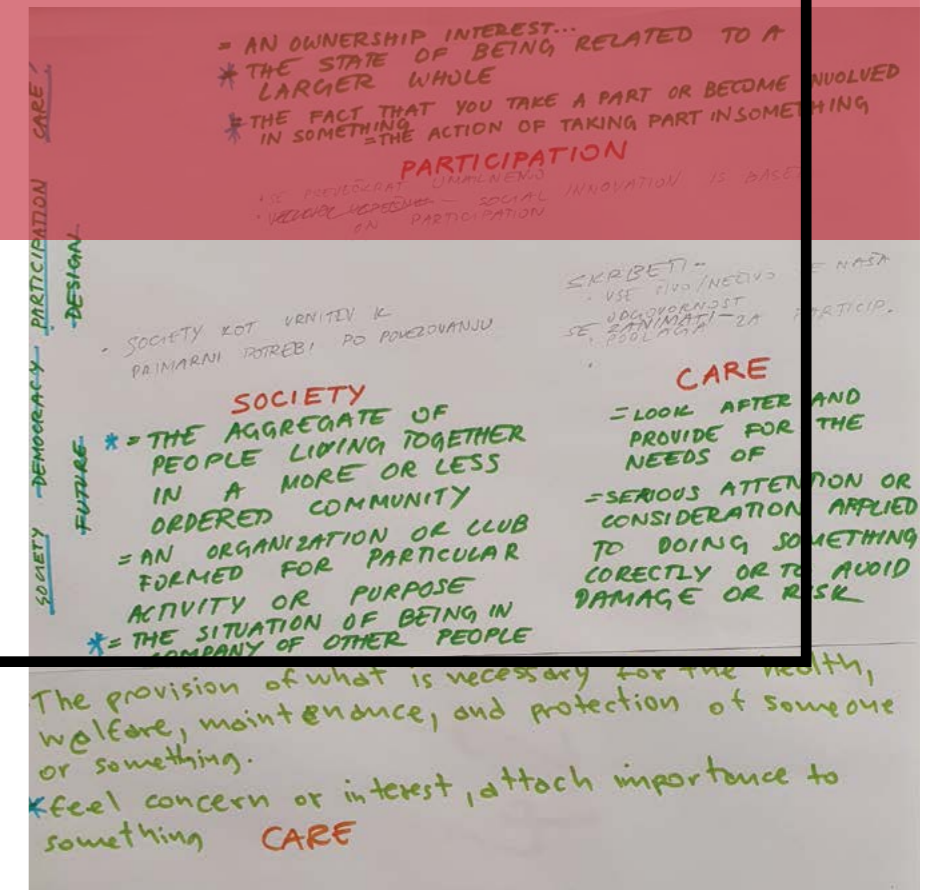 = AN OWNERSHIP INTEREST...
* THE STATE OF BEING RELATED TO A
LARGER WHOLE
= THE FACT THAT YOU TAKE A PART OR BECOME INVOLVED
IN SOMETHING
= THE ACTION OF TAKING PART IN SOMETHING
PARTICIPATION
SOCIAL INNOVATION IS BASED
ON PARTICIPATION
SOCIETY - DEMOCRACY - PARTICIPATION CARE!
FUTURE DESIGN
SKRBETI -
• VSE ŽIVO / NEŽIVO JE NAŠA
ODGOVORNOST
SE ZANIMATI -
• PODLAGA ZA PARTICIP.
• SOCIETY KOT VRNITEV K
PRIMARNI POTREBI PO POVEZOVANJU
SOCIETY
* = THE AGGREGATE OF
PEOPLE LIVING TOGETHER
IN A MORE OR LESS
ORDERED COMMUNITY
= AN ORGANIZATION OR CLUB
FORMED FOR PARTICULAR
ACTIVITY OR PURPOSE
* = THE SITUATION OF BEING IN
COMPANY OF OTHER PEOPLE
CARE
= LOOK AFTER AND
PROVIDE FOR THE
NEEDS OF
= SERIOUS ATTENTION OR
CONSIDERATION APPLIED
TO DOING SOMETHING
CORECTLY OR TO AVOID
DAMAGE OR RISK
The provision of what is necessary for the health,
welfare, maintenance, and protection of someone
or something.
* feel concern or interest, attach importance to
something CARE